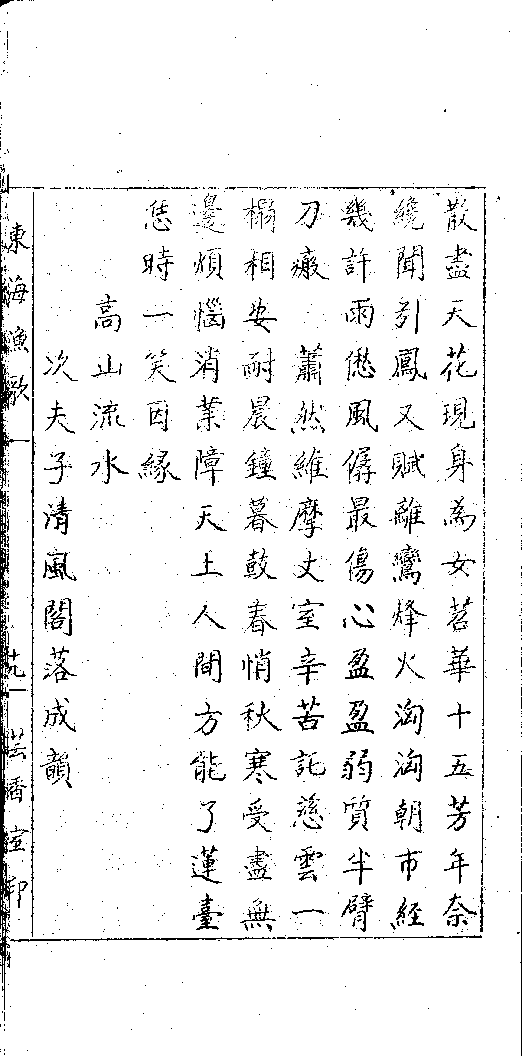 散盡天花現身為女苕華十五芳年奈
纔聞引鳳又賦離鸞烽火洶洶朝市經
幾許雨僽風僝最傷心盈盈弱質半臂
刀瘢　蕭然維摩丈室辛苦託慈雲一
榻相安耐晨鐘暮鼓春悄秋寒受盡無
邊煩惱消業障天上人間方能了蓮臺
恁時一笑因緣
高山流水
次夫子清風閣落成韻
東海漁歌一
芸香室印